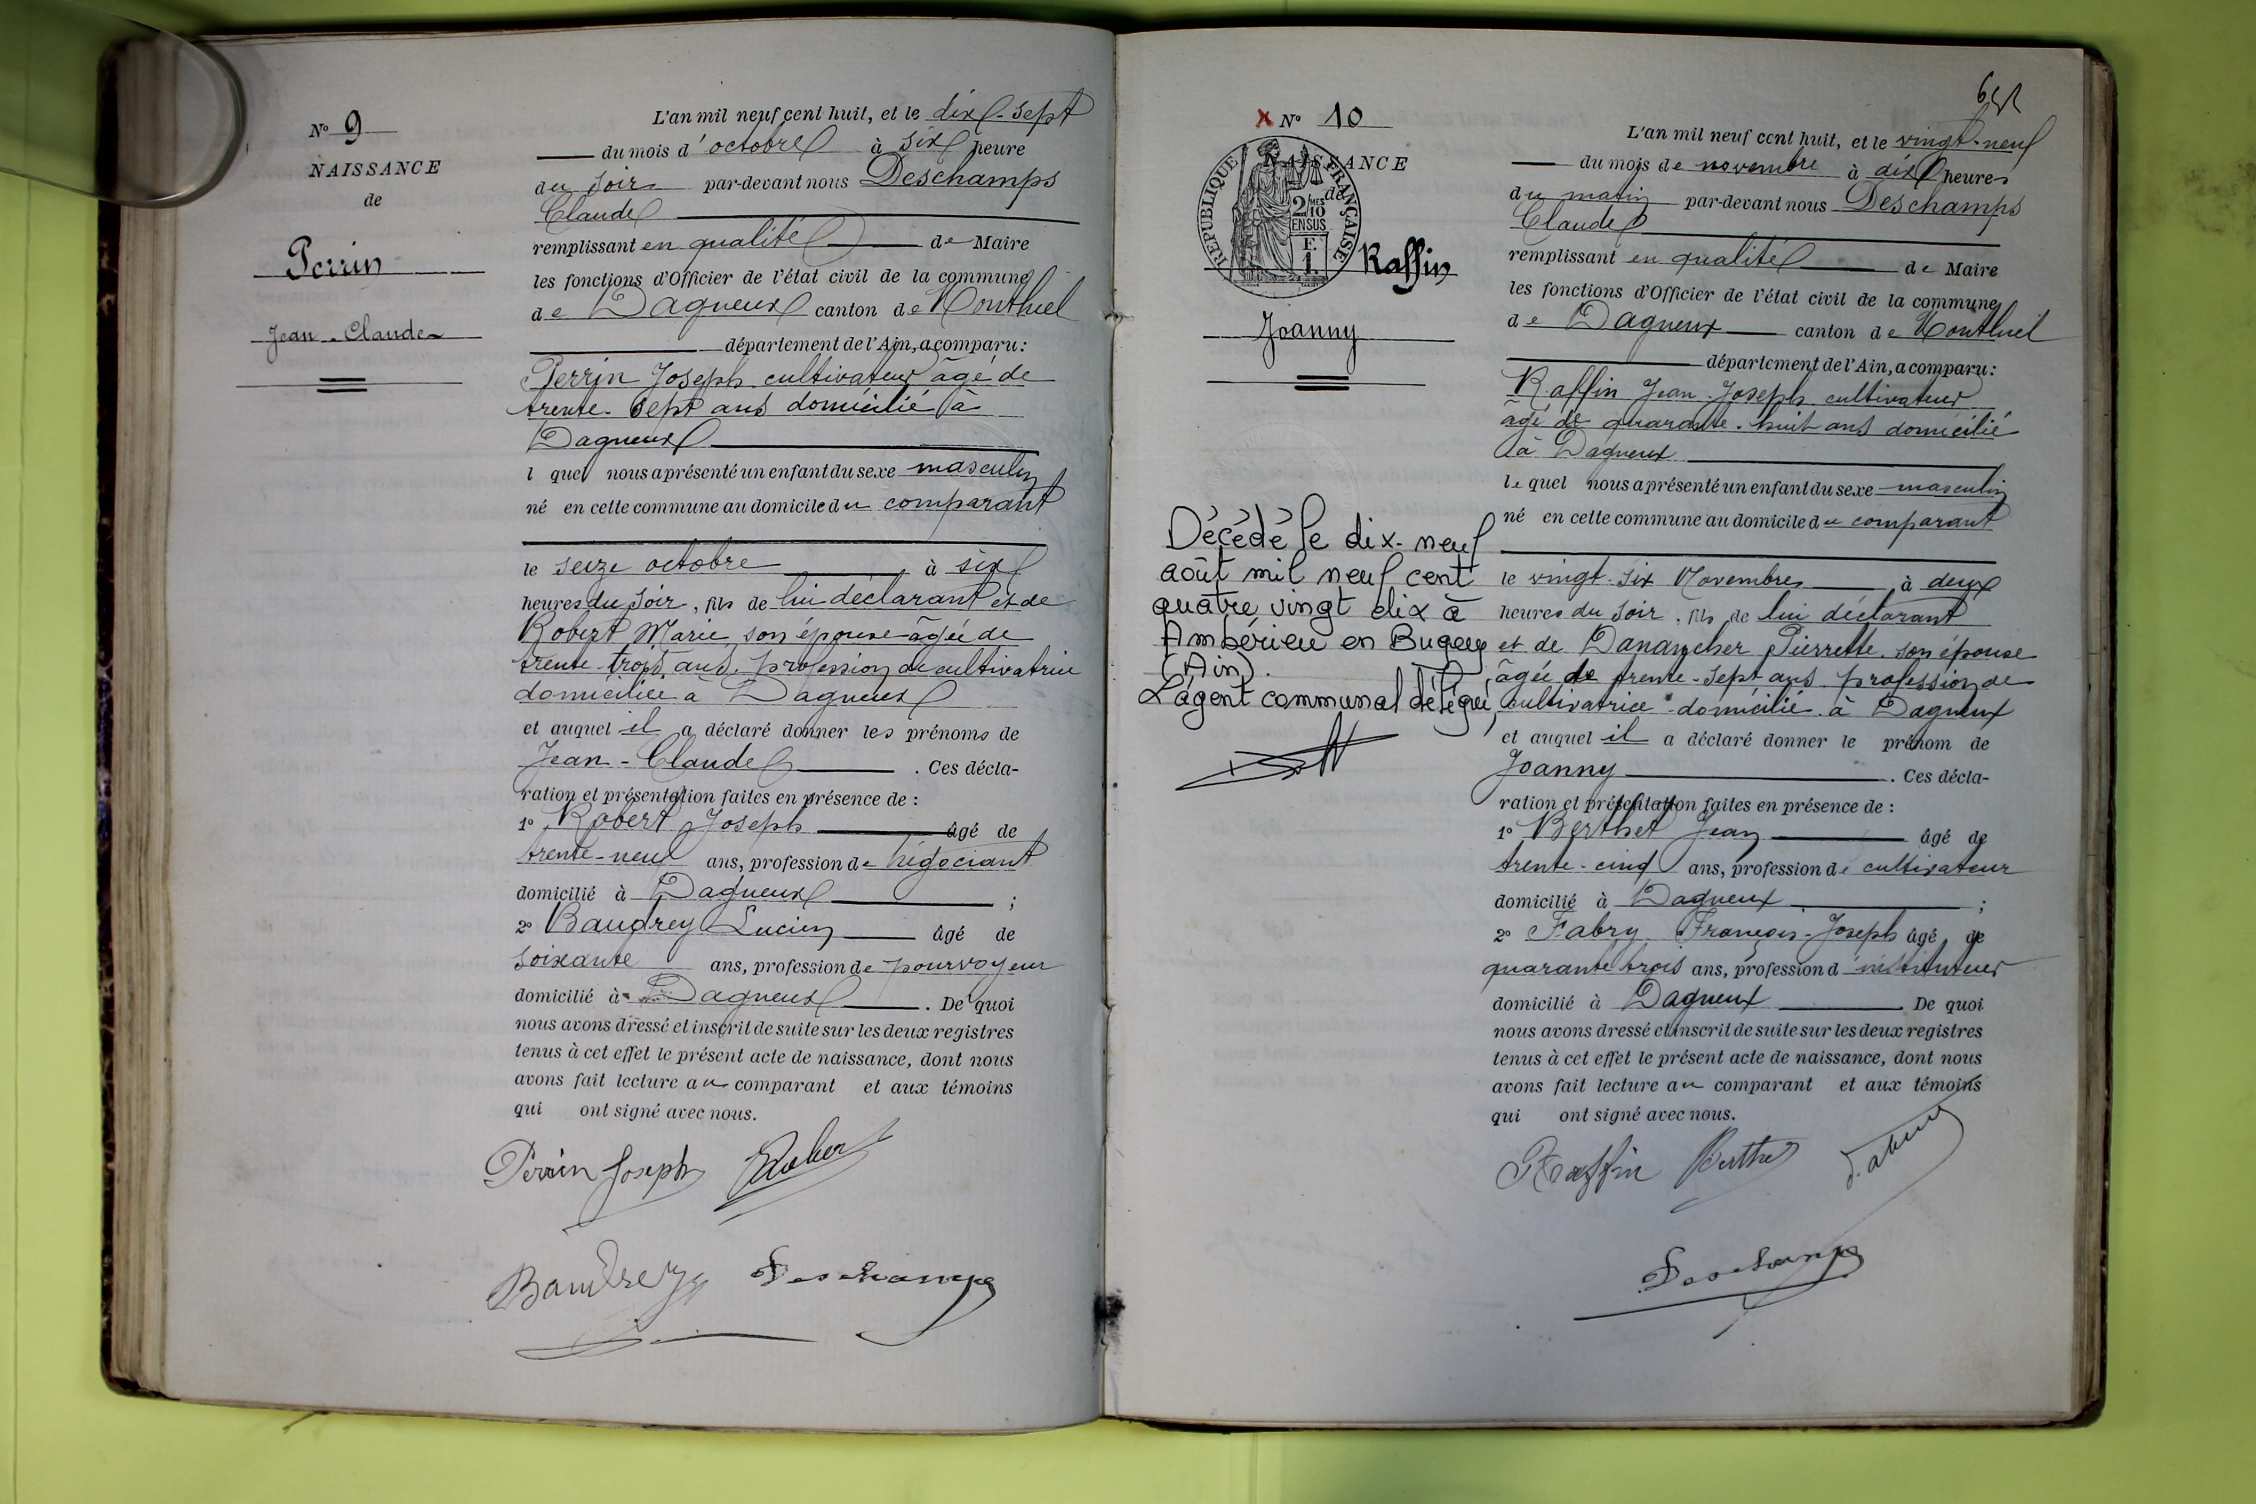 N° 9
NAISSANCE
de
Perrin
Jean-Claude
L'an mil neuf cent huit, et le dix-sept
du mois d'octobre à six heure
du soir par-devant nous Deschamps
Claude
remplissant en qualité de Maire
les fonctions d'Officier de l'état civil de la commune
de Dagneux canton de Montluel
département de l'Ain, a comparu:
Perrin Joseph cultivateur âgé de
trente-sept ans domicilié à
Dagneux
l quel nous a présenté un enfant du sexe masculin
né en cette commune au domicile du comparant
le seize octobre à six
heures du soir, fils de lui déclarant et de
Robert Marie, son épouse âgée de
trente-trois ans, profession de cultivatrice
domiciliée à Dagneux
et auquel il a déclaré donner les prénoms de
Jean-Claude. Ces décla-
ration et présentation faites en présence de :
1° Robert Joseph âgé de
trente-neuf ans, profession de négociant
domicilié à Dagneux ;
2° Baudrey Lucien âgé de
soixante ans, profession de pourvoyeur
domicilié à Dagneux. De quoi
nous avons dressé et inscrit de suite sur les deux registres
tenus à cet effet le présent acte de naissance, dont nous
avons fait lecture au comparant et aux témoins
qui ont signé avec nous.
Perrin Joseph Robert
Baudrey Deschamps
X N° 10
NAISSANCE
de
RÉPUBLIQUE FRANÇAISE
2/10 MES
EN SUS
1 F.
Raffin
Joanny
Décédé le dix-neuf
août mil neuf cent
quatre vingt dix à
Ambérieu en Bugey
(Ain).
L'agent communal délégué,
L'an mil neuf cent huit, et le vingt-neuf
du mois de novembre à dix heures
du matin par-devant nous Deschamps
Claude
remplissant en qualité de Maire
les fonctions d'Officier de l'état civil de la commune
de Dagneux canton de Montluel
département de l'Ain, a comparu:
Raffin Jean-Joseph cultivateur
âgé de quarante-huit ans domicilié
à Dagneux
le quel nous a présenté un enfant du sexe masculin
né en cette commune au domicile du comparant
le vingt-six Novembre à deux
heures du soir, fils de lui déclarant
et de Dananche​r Pierrette son épouse
âgée de trente-sept ans profession de
cultivatrice domicilié à Dagneux
et auquel il a déclaré donner le prénom de
Joanny. Ces décla-
ration et présentation faites en présence de :
1° Berthet Jean âgé de
trente-cinq ans, profession de cultivateur
domicilié à Dagneux ;
2° Fabry François-Joseph âgé de
quarante trois ans, profession d'instituteur
domicilié à Dagneux De quoi
nous avons dressé et inscrit de suite sur les deux registres
tenus à cet effet le présent acte de naissance, dont nous
avons fait lecture au comparant et aux témoins
qui ont signé avec nous.
Raffin Berthet
Deschamps